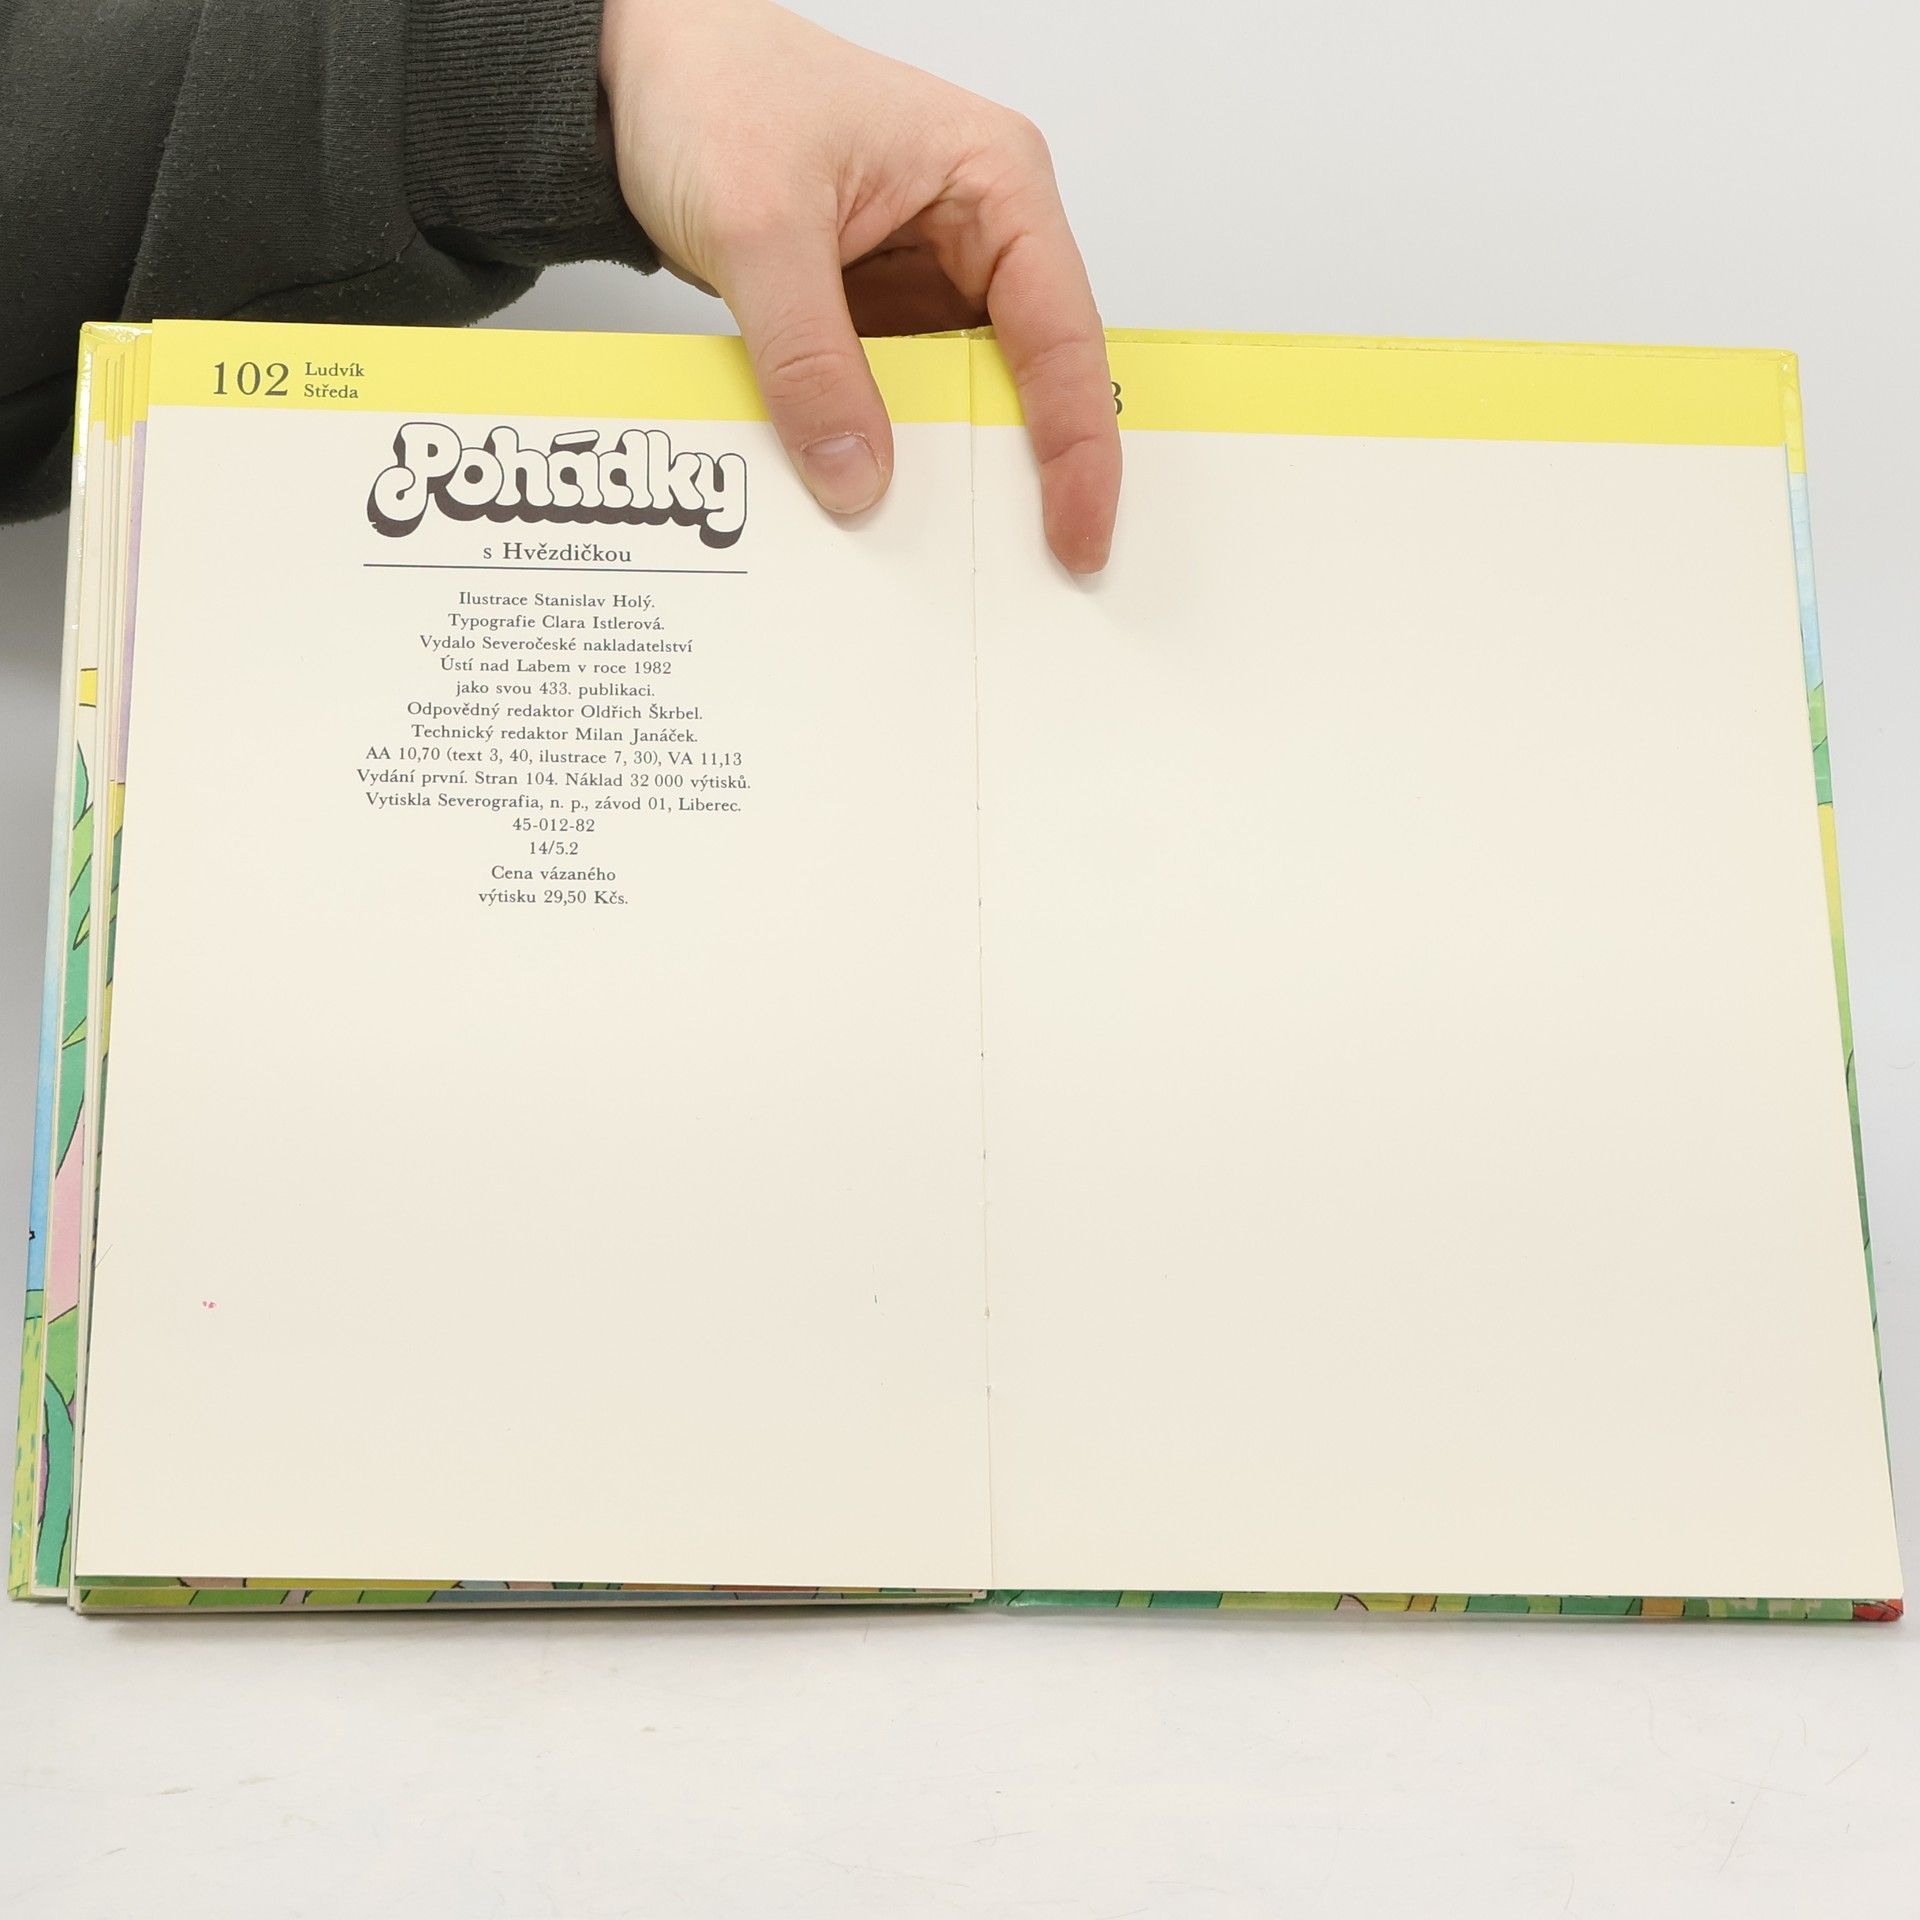 102 Ludvík
Středa
Pohádky
s Hvězdičkou
Ilustrace Stanislav Holý.
Typografie Clara Istlerová.
Vydalo Severočeské nakladatelství
Ústí nad Labem v roce 1982
jako svou 433. publikaci.
Odpovědný redaktor Oldřich Škrbel.
Technický redaktor Milan Janáček.
AA 10,70 (text 3, 40, ilustrace 7, 30), VA 11,13
Vydání první. Stran 104. Náklad 32 000 výtisků.
Vytiskla Severografia, n. p., závod 01, Liberec.
45-012-82
14/5.2
Cena vázaného
výtisku 29,50 Kčs.